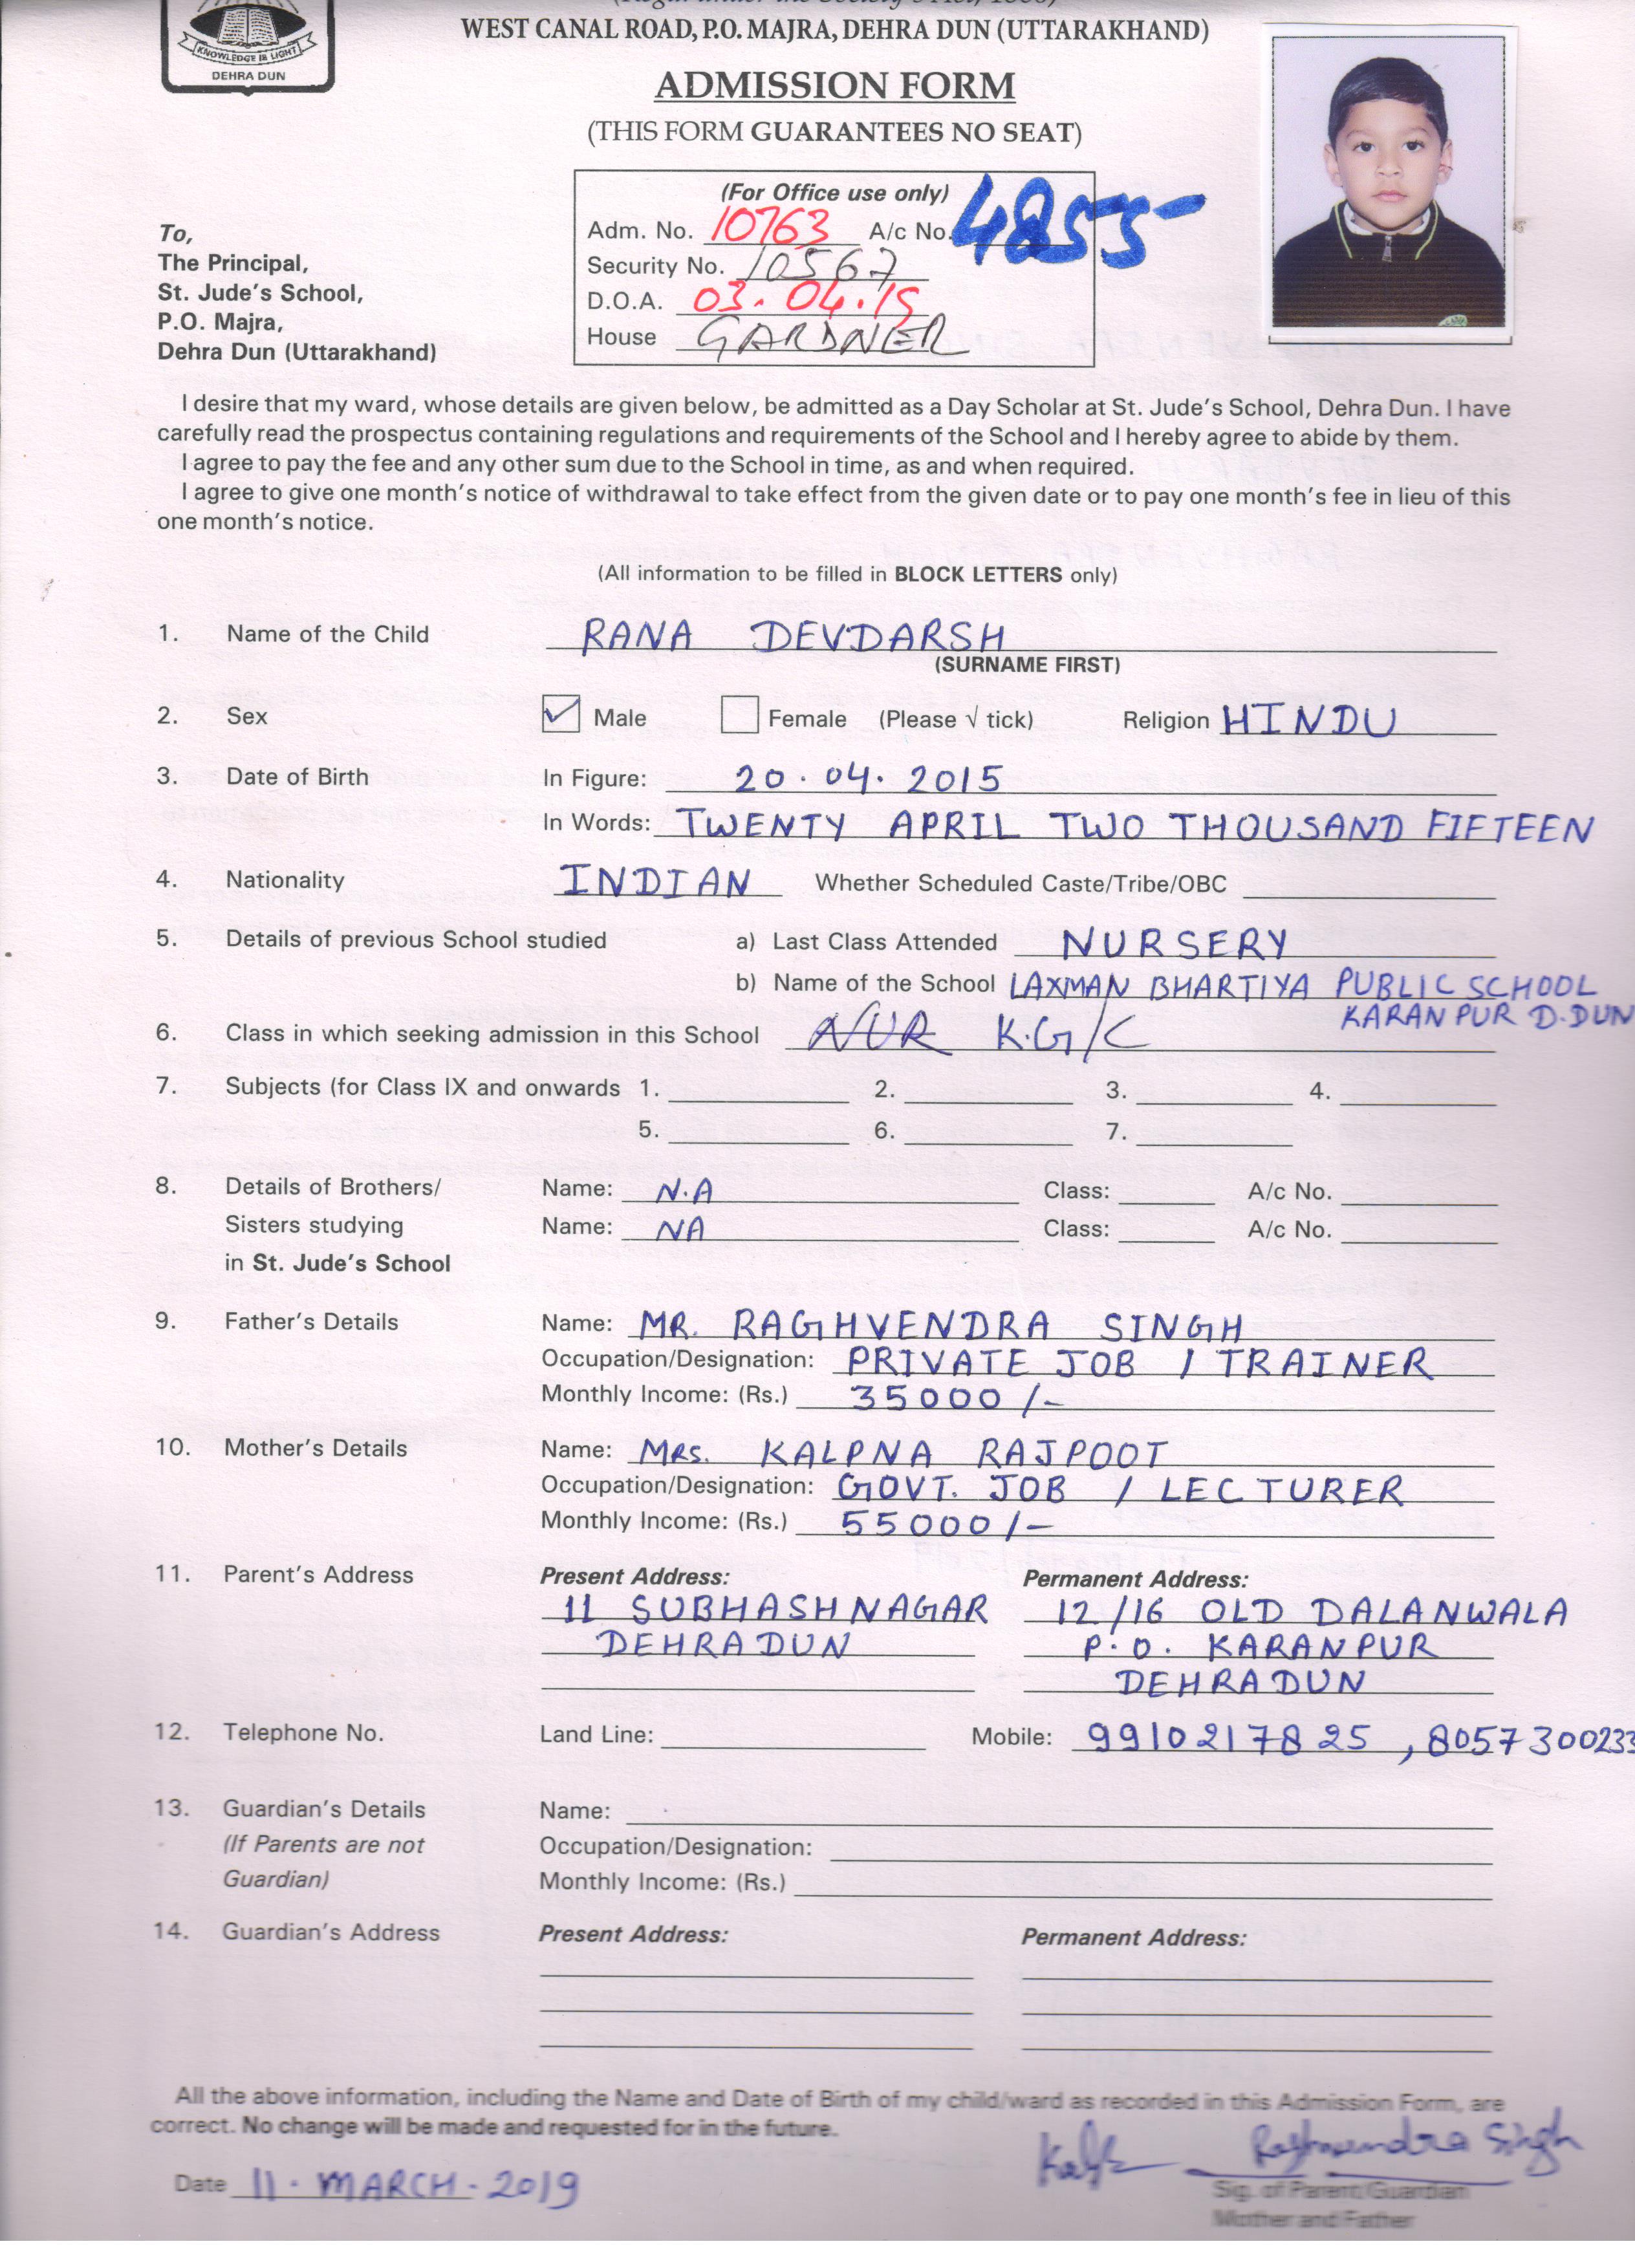 KNOWLEDGE IS LIGHT
DEHRA DUN
WEST CANAL ROAD, P.O. MAJRA, DEHRA DUN (UTTARAKHAND)
ADMISSION FORM
(THIS FORM GUARANTEES NO SEAT)
(For Office use only)
Adm. No. 10763 A/c No. 4855
Security No. 10567
D.O.A. 03.04.19
House GARDNER
To,
The Principal,
St. Jude's School,
P.O. Majra,
Dehra Dun (Uttarakhand)
I desire that my ward, whose details are given below, be admitted as a Day Scholar at St. Jude's School, Dehra Dun. I have
carefully read the prospectus containing regulations and requirements of the School and I hereby agree to abide by them.
I agree to pay the fee and any other sum due to the School in time, as and when required.
I agree to give one month's notice of withdrawal to take effect from the given date or to pay one month's fee in lieu of this
one month's notice.
(All information to be filled in BLOCK LETTERS only)
1. Name of the Child RANA DEVDARSH
(SURNAME FIRST)
2. Sex Male Female (Please √ tick) Religion HINDU
3. Date of Birth In Figure: 20.04.2015
In Words: TWENTY APRIL TWO THOUSAND FIFTEEN
4. Nationality INDIAN Whether Scheduled Caste/Tribe/OBC
5. Details of previous School studied a) Last Class Attended NURSERY
b) Name of the School LAXMAN BHARTIYA PUBLIC SCHOOL
KARANPUR D.DUN
6. Class in which seeking admission in this School NUR K.G/C
7. Subjects (for Class IX and onwards 1. 2. 3. 4.
5. 6. 7.
8. Details of Brothers/ Name: N.A Class: A/c No.
Sisters studying Name: NA Class: A/c No.
in St. Jude's School
9. Father's Details Name: MR. RAGHVENDRA SINGH
Occupation/Designation: PRIVATE JOB / TRAINER
Monthly Income: (Rs.) 35000/-
10. Mother's Details Name: MRS. KALPNA RAJPOOT
Occupation/Designation: GOVT. JOB / LECTURER
Monthly Income: (Rs.) 55000/-
11. Parent's Address Present Address: Permanent Address:
11 SUBHASHNAGAR 12/16 OLD DALANWALA
DEHRADUN P.O. KARANPUR
DEHRADUN
12. Telephone No. Land Line: Mobile: 9910217825, 8057300233
13. Guardian's Details Name:
(If Parents are not Occupation/Designation:
Guardian) Monthly Income: (Rs.)
14. Guardian's Address Present Address: Permanent Address:
All the above information, including the Name and Date of Birth of my child/ward as recorded in this Admission Form, are
correct. No change will be made and requested for in the future.
Raghvendra Singh
Date 11. MARCH - 2019
Sig. of Parent/Guardian
Mother and Father